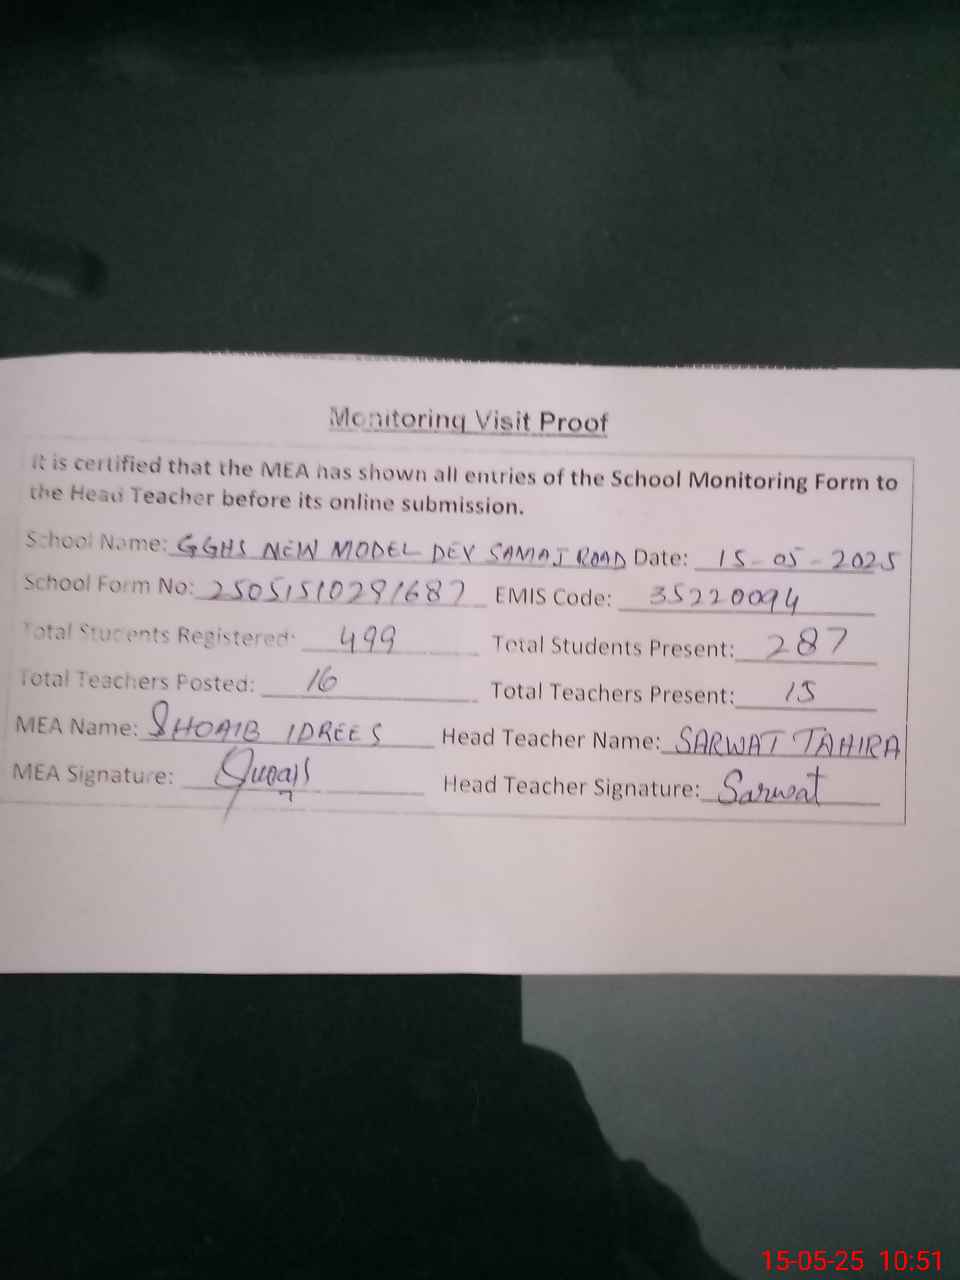 Monitoring Visit Proof
It is certified that the MEA has shown all entries of the School Monitoring Form to
the Head Teacher before its online submission.
School Name: GGHS NEW MODEL DEV SAMAJ ROAD Date: 15-05-2025
School Form No: 25051510291687 EMIS Code: 35220094
Total Students Registered: 499 Total Students Present: 287
Total Teachers Posted: 16 Total Teachers Present: 15
MEA Name: SHOAIB IDREES Head Teacher Name: SARWAT TAHIRA
MEA Signature: Head Teacher Signature: Sarwat
15-05-25 10:51